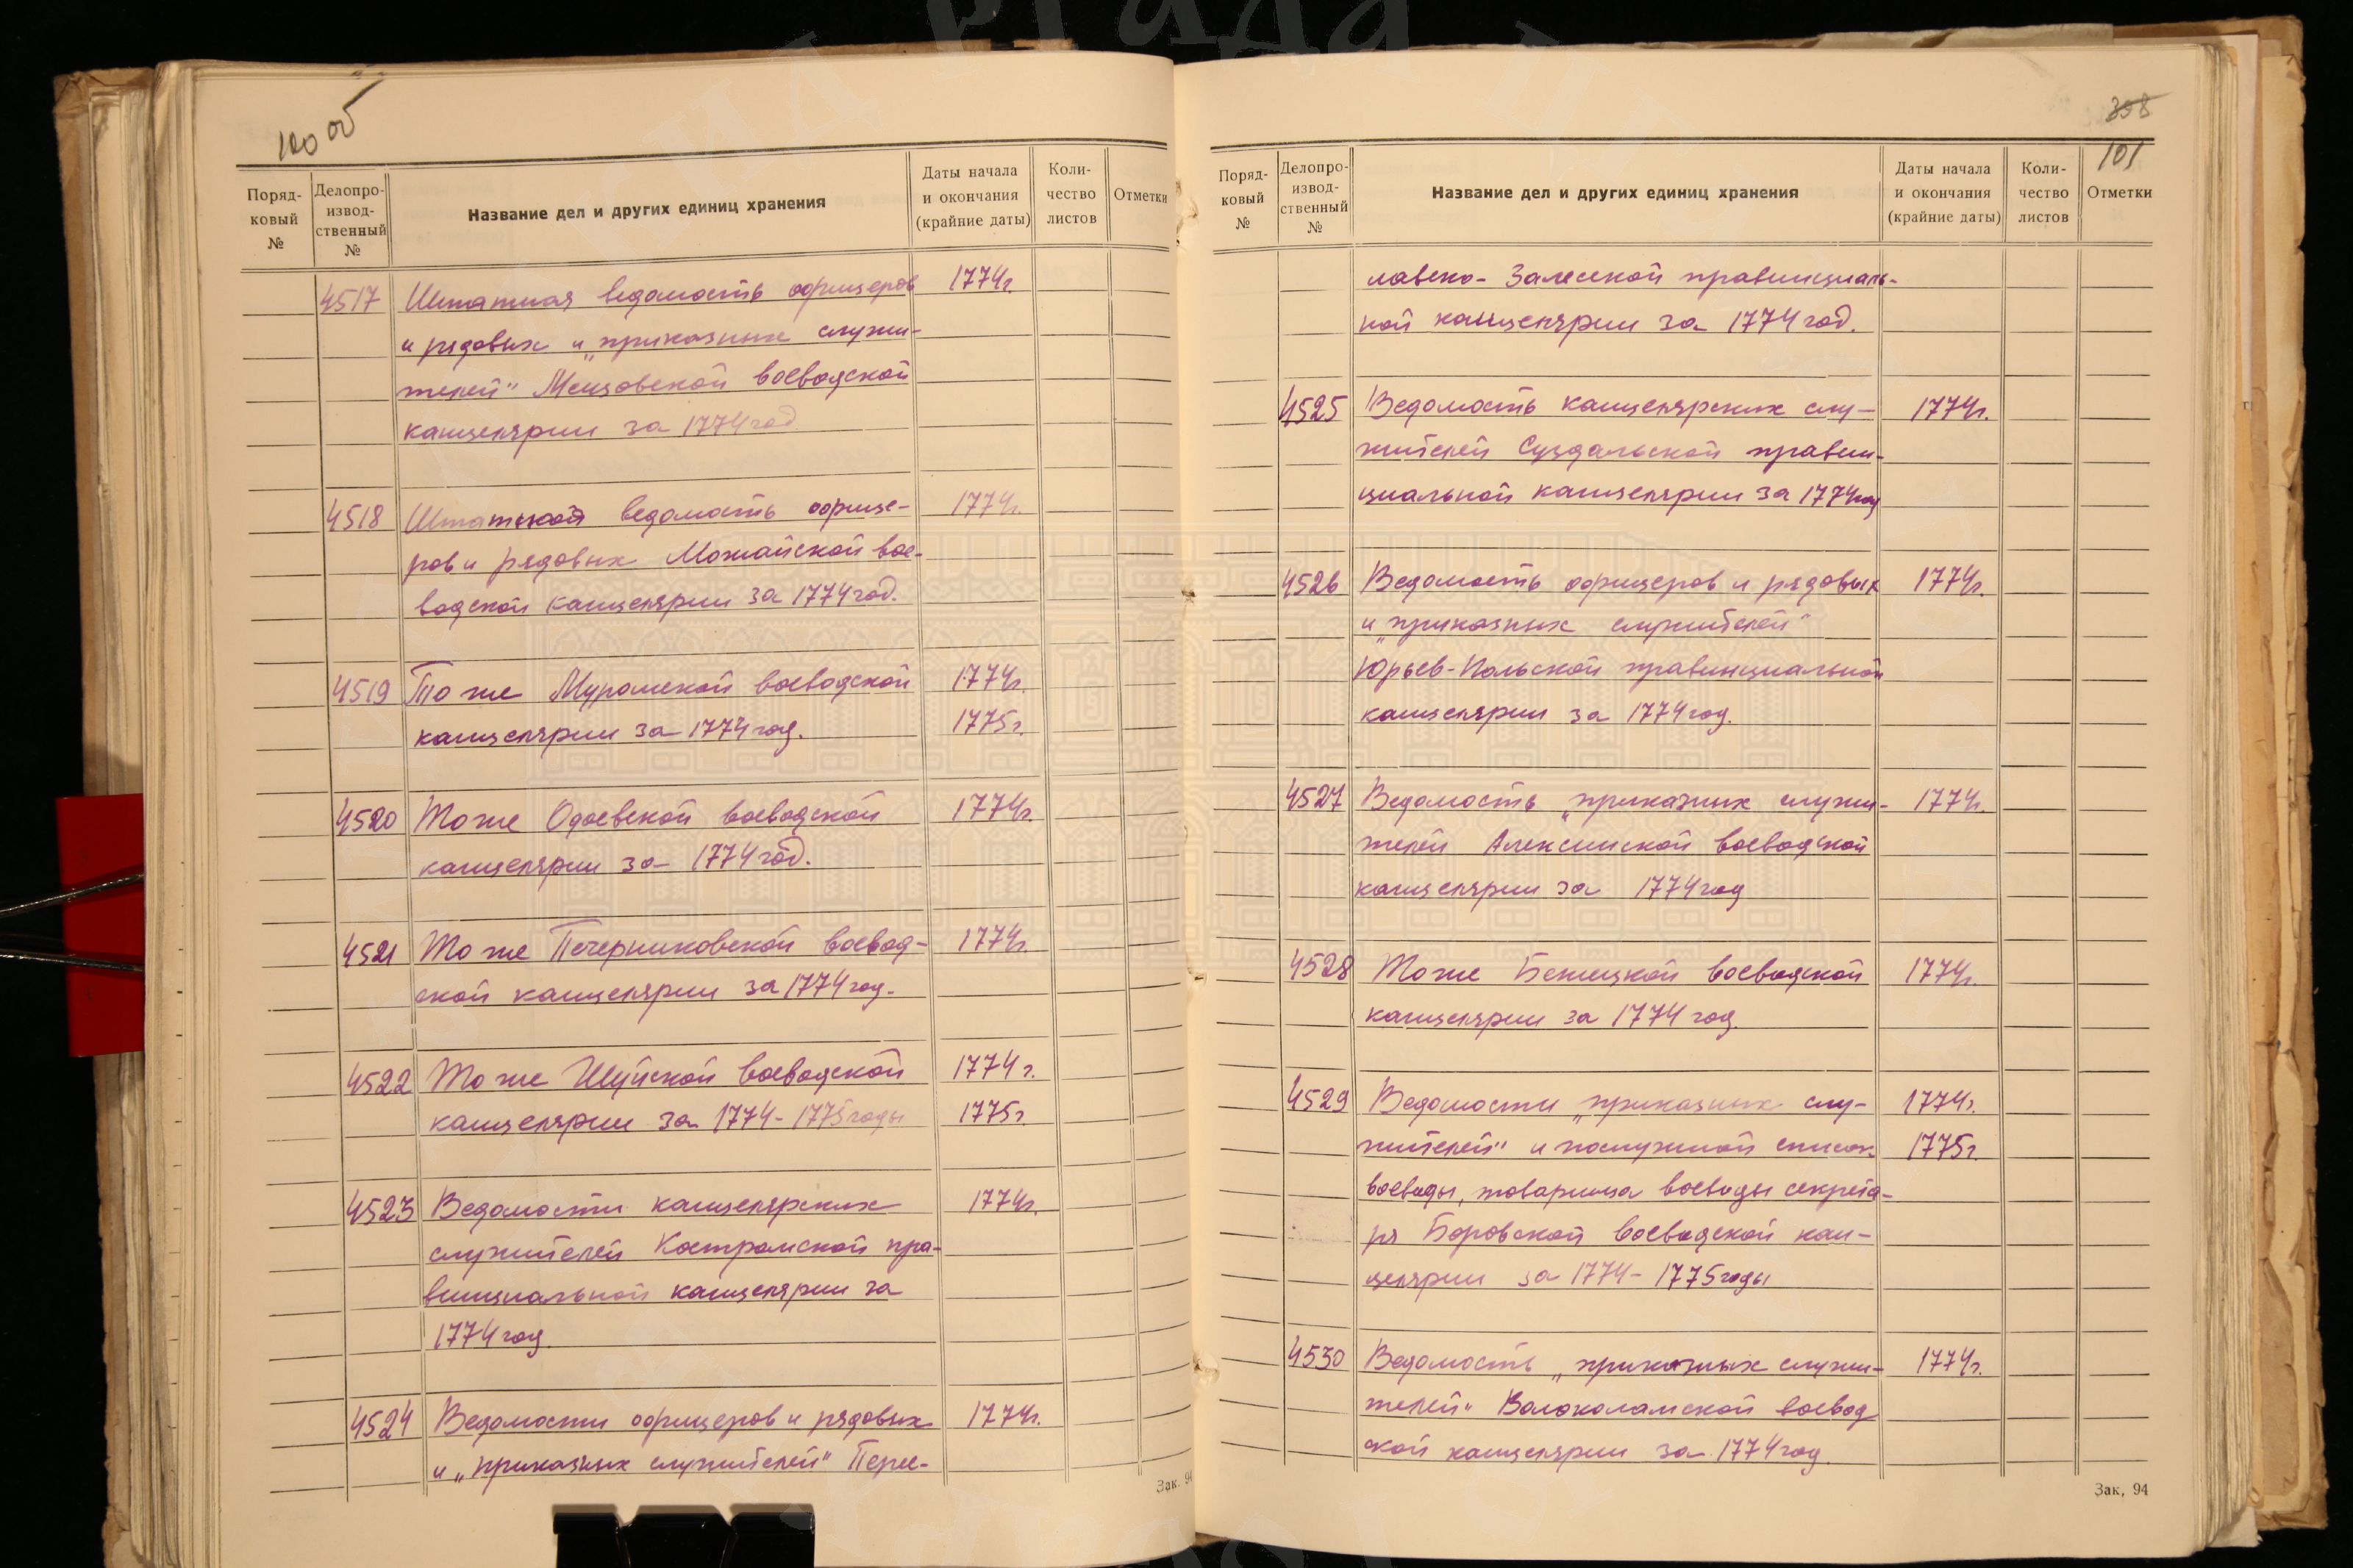 100 об
Поряд-
ковый
№
Делопро-
извод-
ственный
№
Название дел и других единиц хранения
Даты начала
и окончания
(крайние даты)
Коли-
чество
листов
Отметки
4517 Штатная ведомость офицеров 1774г.
и рядовых и „приказных служи-
телей" Мещовской воеводской
канцелярии за 1774 год
4518 Штатной ведомость офице- 1774г.
ров и рядовых Можайской вое-
водской канцелярии за 1774 год.
4519 То же Муромской воеводской 1774г.
канцелярии за 1774 год. 1775г.
4520 То же Одоевской воеводской 1774г.
канцелярии за 1774 год.
4521 То же Печерниковской воевод- 1774г.
ской канцелярии за 1774 год.
4522 То же Шуйской воеводской 1774г.
канцелярии за 1774-1775 годы 1775г.
4523 Ведомости канцелярских 1774г.
служителей Костромской про-
винциальной канцелярии за
1774 год.
4524 Ведомости офицеров и рядовых 1774г.
и „приказных служителей" Перес-
Зак. 94
398
101
Поряд-
ковый
№
Делопро-
извод-
ственный
№
Название дел и других единиц хранения
Даты начала
и окончания
(крайние даты)
Коли-
чество
листов
Отметки
лавско-Залесской провинциаль-
ной канцелярии за 1774 год.
4525 Ведомость канцелярских слу- 1774г.
жителей Суздальской провин-
циальной канцелярии за 1774 год
4526 Ведомость офицеров и рядовых 1774г.
и „приказных служителей"
Юрьев-Польской провинциальной
канцелярии за 1774 год.
4527 Ведомость „приказных служи- 1774г.
телей Алексинской воеводской
канцелярии за 1774 год
4528 То же Бежецкой воеводской 1774г.
канцелярии за 1774 год.
4529 Ведомости „приказных слу- 1774г.
жителей" и послужной список 1775г.
воеводы, товарища воеводы секрета-
ря Боровской воеводской кан-
целярии за 1774-1775 годы
4530 Ведомость „приказных служи- 1774г.
телей" Волоколамской воевод
ской канцелярии за 1774 год.
Зак, 94